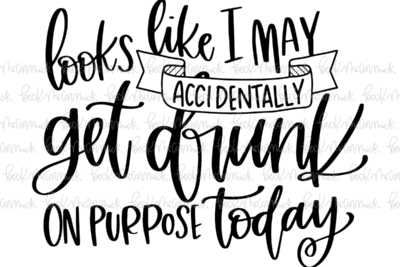 looks like I MAY
ACCIDENTALLY
get drunk
ON PURPOSE today